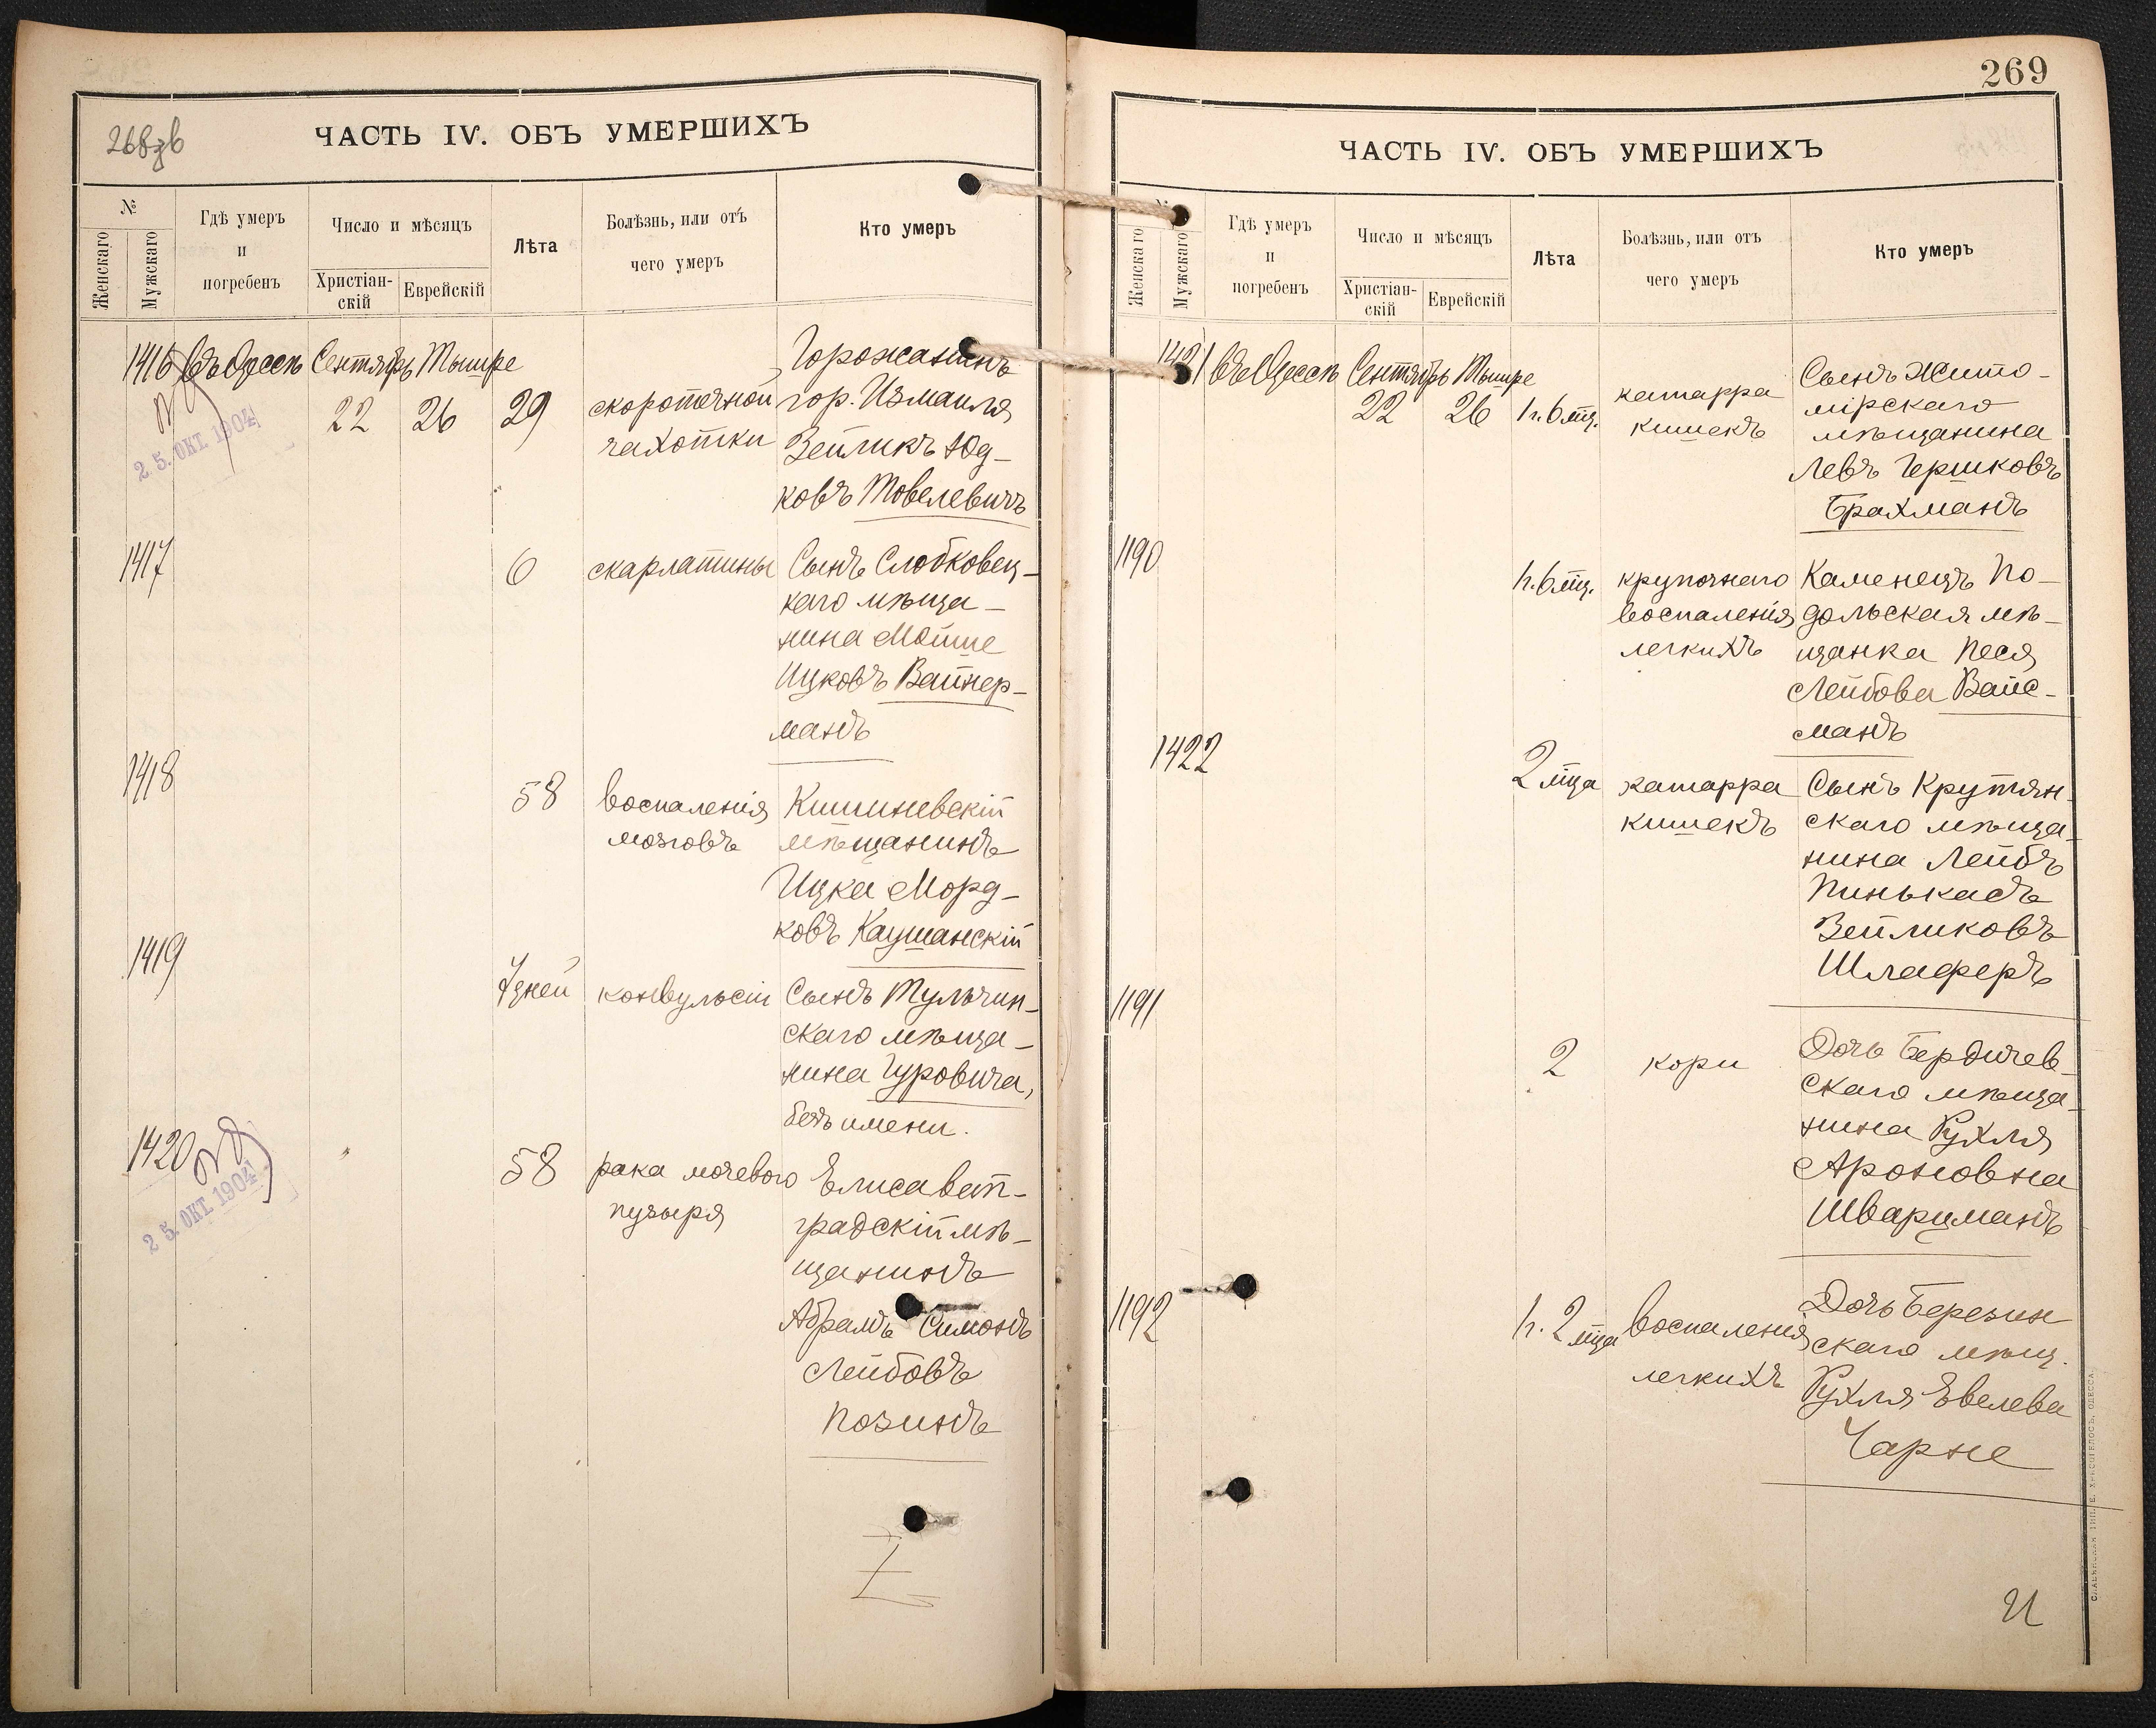 268зв
ЧАСТЬ IV. ОБЪ УМЕРШИХЪ
№
Женскаго
Мужскаго
Гдѣ умеръ
и
погребенъ
Число и мѣсяцъ
Христіан-
скій
Еврейскій
Лѣта
Болѣзнь, или отъ
чего умеръ
Кто умеръ
1416 Въ Одессѣ Сентябрь Тышре
22 26 29
скороточной
чахотки
Горожанинъ
гор. Измаила
Зейликъ Юд-
ковъ Товелевичъ
25. ОКТ. 1904
1417
6 скарлатины
Сынъ Слобковец-
каго мѣща-
нина Мойше
Ицковъ Вайнер-
манъ
1418
58 воспаленія
мозговъ
Кишиневскій
мѣщанинъ
Ицка Морд-
ковъ Каушанскій
1419
7 дней конвульсіи
Сынъ Тульчин-
скаго мѣща-
нина Гуровича,
безъ имени.
1420
58 рака мочевого
пузыря
Елисавет-
градскій мѣ-
щанинъ
Абрамъ Симонъ
Лейбовъ
Позинъ
25. ОКТ. 1904
269
ЧАСТЬ IV. ОБЪ УМЕРШИХЪ
№
Женскаго
Мужскаго
Гдѣ умеръ
и
погребенъ
Число и мѣсяцъ
Христіан-
скій
Еврейскій
Лѣта
Болѣзнь, или отъ
чего умеръ
Кто умеръ
1421 Въ Одессѣ Сентябрь Тышре
22 26 1г. 6 мц.
катарра
кишекъ
Сынъ Жито-
мірскаго
мѣщанина
Левъ Гершковъ
Брахманъ
1190
1г. 6 мц. крупознаго
воспаленія
легкихъ
Каменецъ По-
дольская мѣ-
щанка Песя
Лейбова Вайс-
манъ
1422
2 мца катарра
кишекъ
Сынъ Крутян-
скаго мѣща-
нина Лейбъ
Пинькасъ
Зейликовъ
Шлаферъ
1191
2 кори
Дочь Бердичев-
скаго мѣща-
нина Рухля
Ароновна
Шварцманъ
1192
1г. 2 мца воспаленія
легкихъ
Дочь Березин
скаго мѣщ.
Рухля Евелева
Чарне
СЛАВЯНСКАЯ ТИП. Е. ХРИСОГЕЛОСЪ, ОДЕССА.